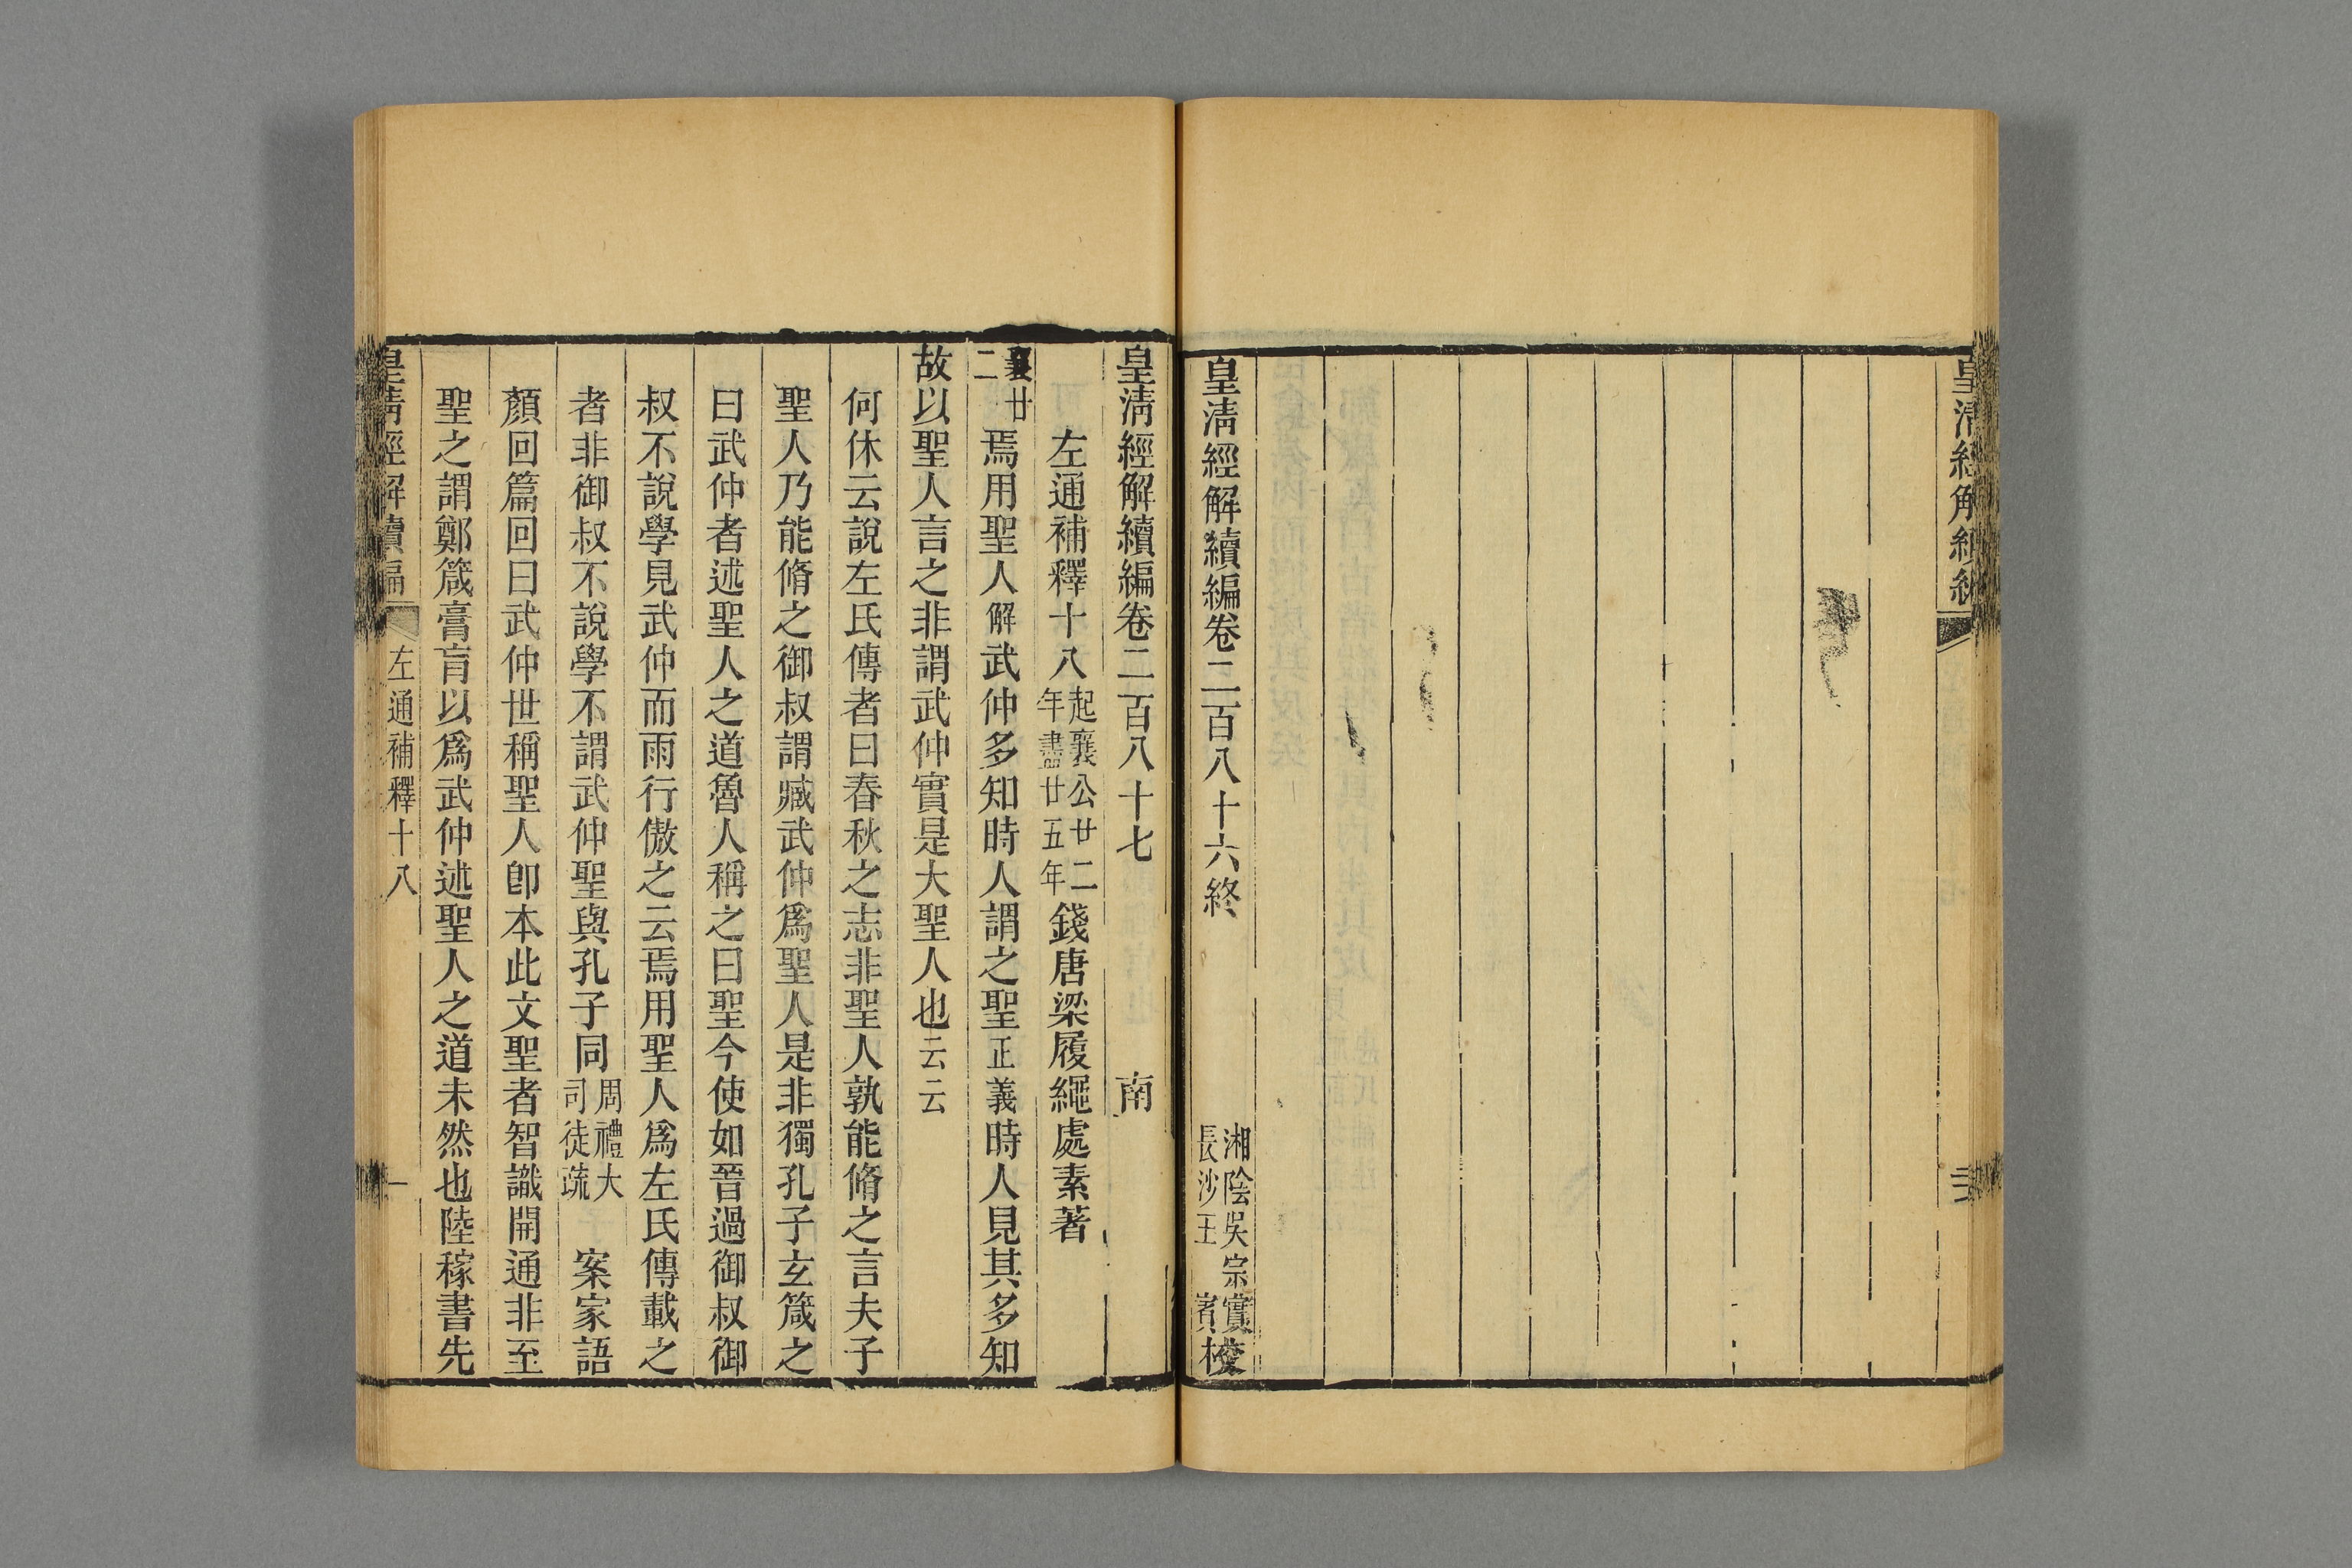 皇清經解續編
三
皇清經解續編卷二百八十六終
湘陰吳宗實
長沙王 賓校
皇清經解續編卷二百八十七 南
左通補釋十八 起襄公廿二年盡廿五年 錢唐梁履繩處素著
襄廿二 焉用聖人解武仲多知時人謂之聖正義時人見其多知
故以聖人言之非謂武仲實是大聖人也云云
何休云說左氏傳者曰春秋之志非聖人孰能脩之言夫子
聖人乃能脩之御叔謂臧武仲爲聖人是非獨孔子玄箴之
曰武仲者述聖人之道魯人稱之曰聖今使如晉過御叔御
叔不說學見武仲而雨行傲之云焉用聖人爲左氏傳載之
者非御叔不說學不謂武仲聖與孔子同 周禮大司徒疏 案家語
顏回篇回曰武仲世稱聖人卽本此文聖者智識開通非至
聖之謂鄭箴膏肓以爲武仲述聖人之道未然也陸稼書先
皇清經解續編 左通補釋十八 一